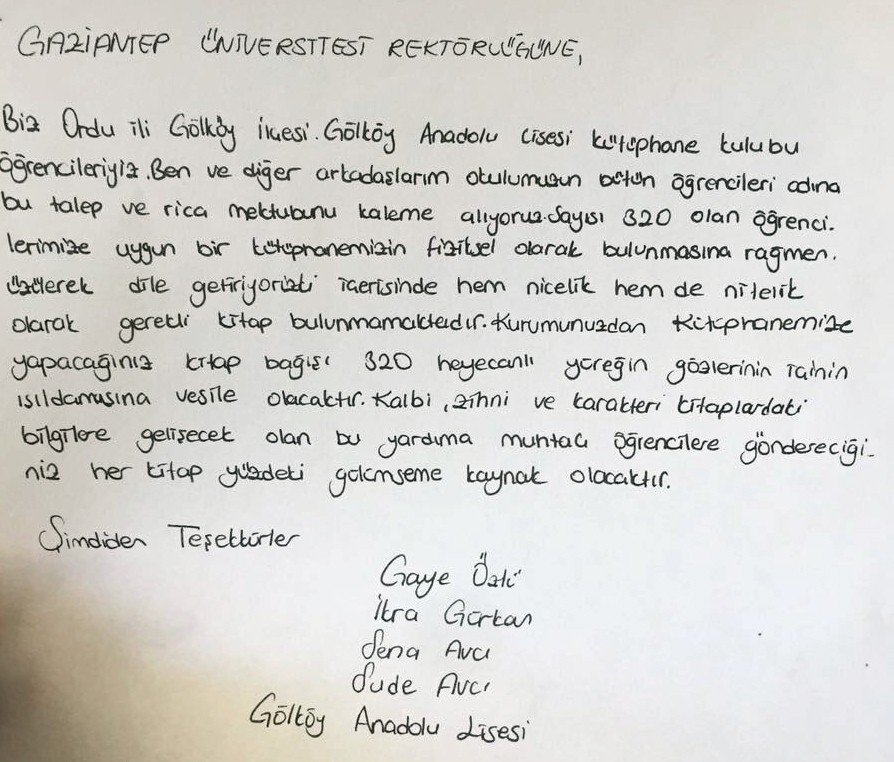 GAZİANTEP ÜNİVERSİTESİ REKTÖRLÜĞÜNE,
Biz Ordu ili Gölköy ilçesi. Gölköy Anadolu Lisesi kütüphane kulubu
öğrencileriyiz. Ben ve diğer arkadaşlarım okulumuzun bütün öğrencileri adına
bu talep ve rica mektubunu kaleme alıyoruz. Sayısı 320 olan öğrenci-
lerimize uygun bir kütüphanemizin fiziksel olarak bulunmasına rağmen,
üzülerek dile getiriyorizki içerisinde hem nicelik hem de nitelik
olarak gerekli kitap bulunmamaktadır. Kurumunuzdan Kütüphanemize
yapacağınız kitap bağışı 320 heyecanlı yüreğin gözlerinin
ışıldamasına vesile olacaktır. Kalbi, zihni ve karakteri kitaplardaki
bilgilere gelişecek olan bu yardıma muhtaç öğrencilere göndereceği-
niz her kitap yüzdeki gülümseme kaynak olacaktır.
Şimdiden Teşekkürler
Gaye Özlü
İkra Gürkan
Sena Avcı
Sude Avcı
Gölköy Anadolu Lisesi